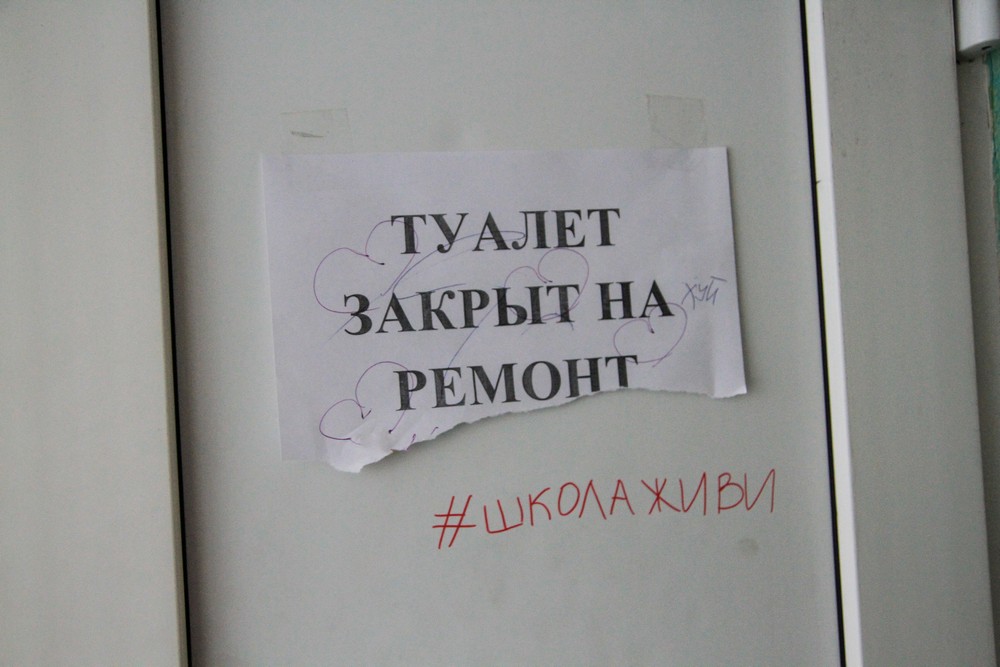 ТУАЛЕТ
ЗАКРЫТ НА хуй
РЕМОНТ
#ШКОЛАЖИВИ